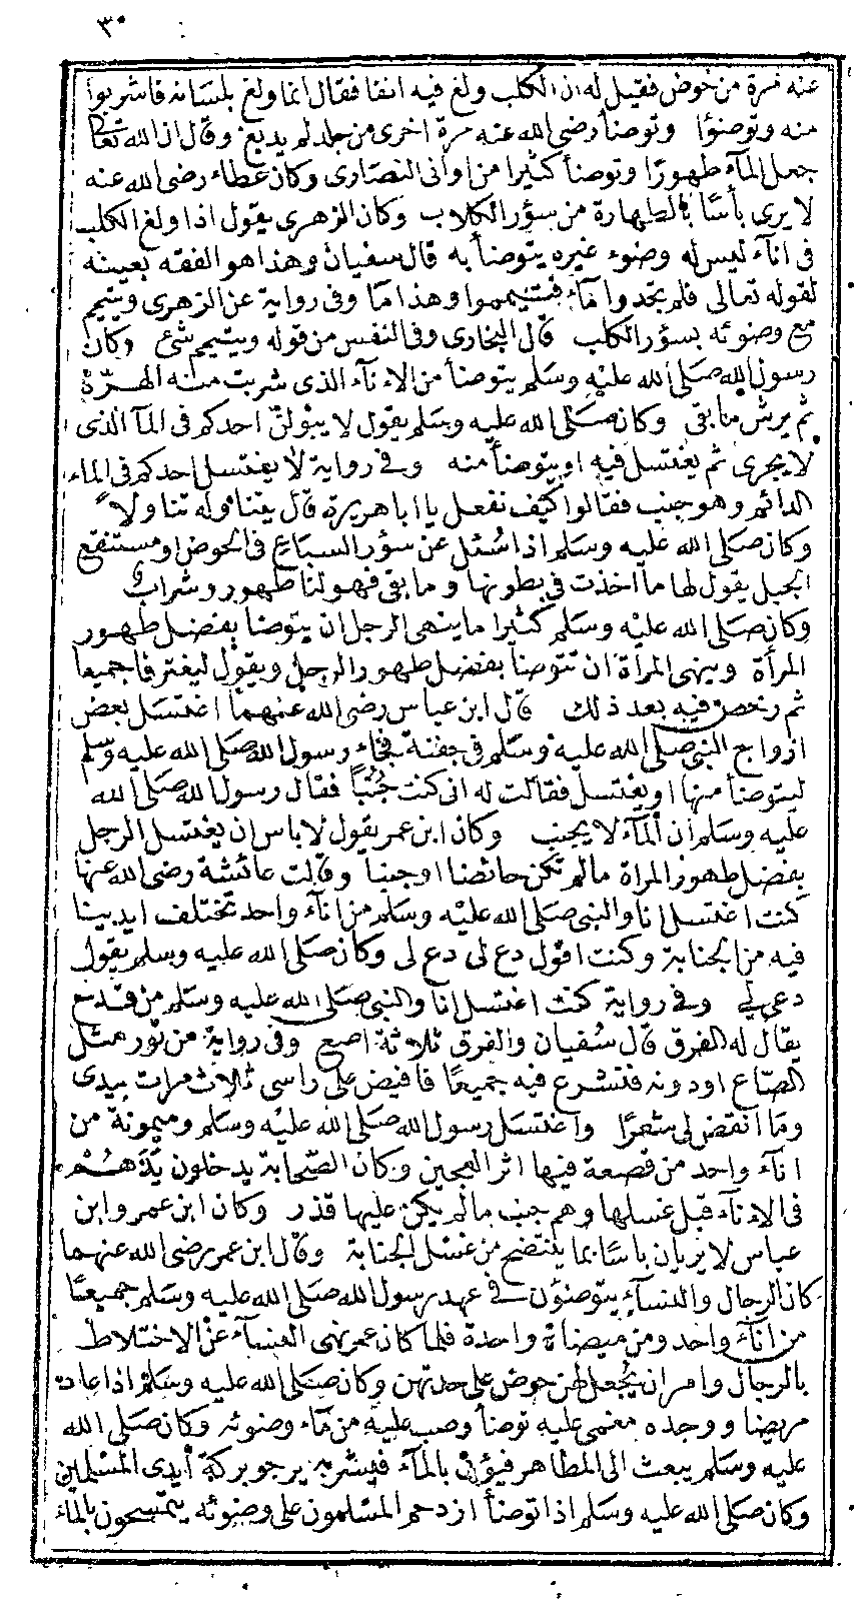 ٣٠
عنه مرة من حوض فقيل له ان الكلب ولغ فيه انفا فقال انما ولغ بلسانه فاشربوا
منه وتوضؤا وتوضأ رضى الله عنه مرة اخرى من جلد لم يدبغ وقال ان الله تعالى
جعل المآء طهورًا وتوضأ كثيرا من اوانى النصارى وكان عطاء رضى الله عنه
لا يرى بأسًا بالطهارة من سؤر الكلاب وكان الزهرى يقول اذا ولغ الكلب
فى انآء ليس له وضوء غيره يتوضأ به قال سفيان وهذا هو الفقه بعينه
لقوله تعالى فلم تجدوا مآء فتيمموا وهذا مآ وفى رواية عن الزهرى ويتيمم
مع وضوئه بسؤر الكلب قال البخارى وفى النفس من قوله ويتيمم شئ وكان
رسول الله صَلى الله عليْه وسَلم يتوضأ من الانآء الذى شربت منه الهرّة
ثم يرش ما بقى وكان صَلى الله عليه وسَلم يقول لا يبولنّ احدكم فى المآ الذى
لا يجرى ثم يغتسل فيه او يتوضأ منه وفى رواية لا يغتسل احدكم فى الماء
الدائم وهو جنب فقالوا كيف نفعل يا ابا هريرة قال يتناوله تناولاً
وكان صَلى الله عليه وسَلم اذا سُئل عن سؤر السباع فى الحوض او مستنقع
الجبل يقول لها ما اخذت فى بطونها وما بقى فهو لنا طهور وشراب
وكان صَلى الله عليْه وسَلم كثيرا ما ينهى الرجل ان يتوضأ بفضل طهور
المرأة وينهى المرأة ان تتوضأ بفضل طهور الرجل ويقول ليغترفا جميعا
ثم رخص فيه بعد ذلك قال ابن عباس رضى الله عنهما اغتسل بعض
ازواج النبى صلى الله عليه وسَلم فى جفنة فجاء رسول الله صَلى الله عليه وسلم
ليتوضأ منها او يغتسل فقالت له انى كنت جُنُباً فقال رسول الله صَلى الله
عليه وسَلم ان المآء لا يجنب وكان ابن عمر يقول لا باس ان يغتسل الرجل
بفضل طهور المراة ما لم تكن حائضا او جنبا وقالت عائشة رضى الله عنها
كنت اغتسل انا والنبى صَلى الله عليْه وسَلم من انآء واحد تختلف ايدينا
فيه من الجنابة وكنت اقول دع لى دع لى وكان صَلى الله عليه وسَلم يقول
دعى لي وفى رواية كنت اغتسل انآ والنبى صَلى الله عليه وسَلم من قدح
يقال له الفرق قال سُفيان والفرق ثلاثة اصع وفى رواية من تور مثل
الصّاع او دونه فنشرع فيه جميعًا فافيض على راسى ثلاث مرات بيدى
وما انقض لى شعرًا واغتسل رسول الله صَلى الله عليْه وسَلم وميمونة من
انآء واحد من قصعة فيها اثر العجين وكان الصّحابة يدخلون يَدَهُم
فى الانآء قبل غسلها وهم جنب ما لم يكن عليها قذر وكان ابن عمر وابن
عباس لا يريان باسًا بما ينتضح من غسل الجنابة وقال ابن عمر رضى الله عنهما
كان الرجال والنسآء يتوضؤن فى عهد رسول الله صَلى الله عليه وسَلم جميعًا
من انآء واحد ومن ميضاة واحدة فلما كان عمر نهى النسآء عن الاختلاط
بالرجال وامر ان يُجعل لهن حوض على حدتهن وكان صَلى الله عليه وسَلم اذا عاد
مريضا ووجده مغمى عليه توضأ وصب عليه من مآء وضوئه وكان صَلى الله
عليه وسَلم يبعث الى المطاهر فيؤتى بالمآء فيشربه يرجو بركة أيدى المسْلمين
وكان صَلى الله عليه وسَلم اذا توضأ ازدحم المسْلمون على وضوئه يتمسحون بالمآء